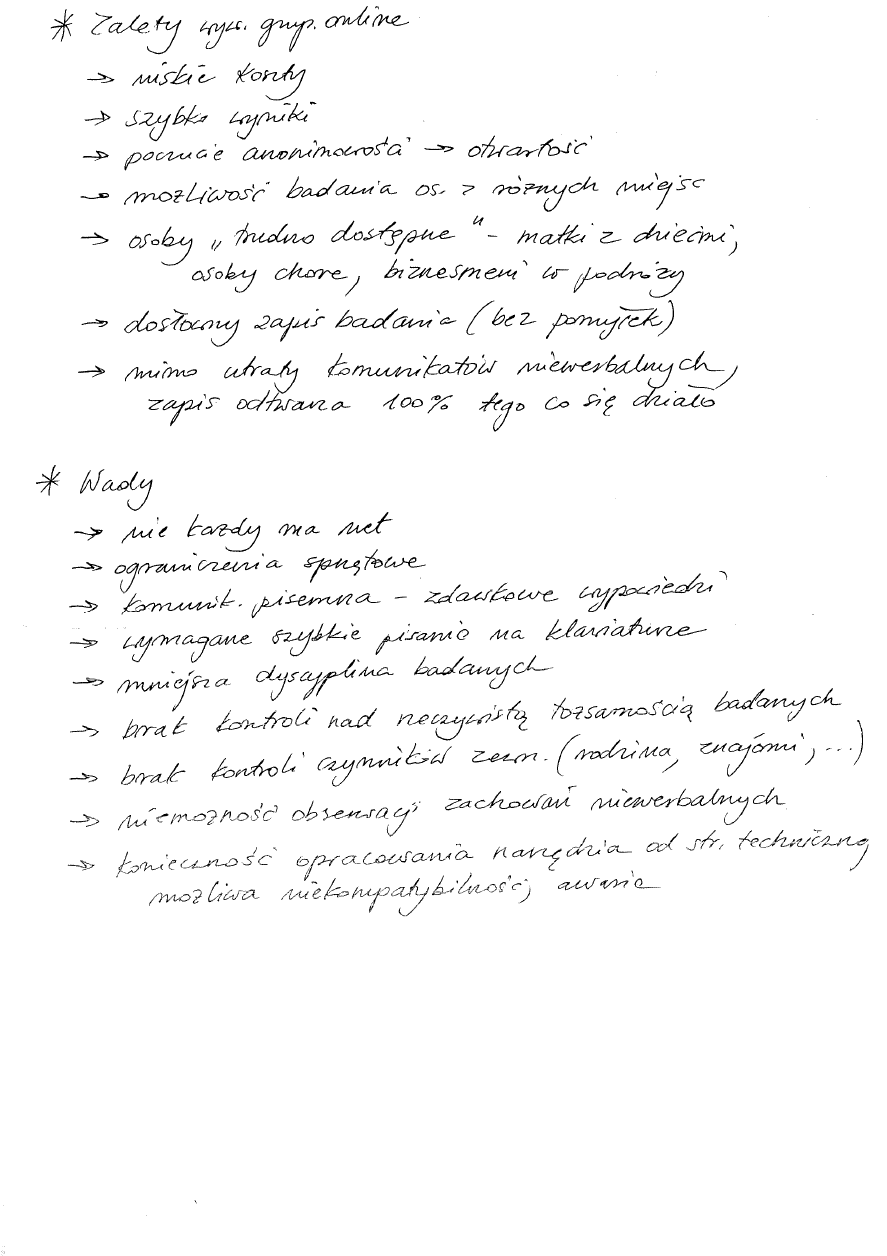 * Zalety wyw. grup. online
→ niskie koszty
→ szybkie wyniki
→ poczucie anonimowości → otwartość
→ możliwość badania os. z różnych miejsc
→ osoby „trudno dostępne" - matki z dziećmi,
osoby chore, biznesmeni w podróży
→ dosłowny zapis badania (bez pomyłek)
→ mimo utraty komunikatów niewerbalnych,
zapis odtwarza 100% tego co się działo
* Wady
→ nie każdy ma net
→ ograniczenia sprzętowe
→ komunik. pisemna - zdawkowe wypowiedzi
→ wymagane szybkie pisanie na klawiaturze
→ mniejsza dyscyplina badanych
→ brak kontroli nad rzeczywistą tożsamością badanych
→ brak kontroli czynników zewn. (rodzina, znajomi, ...)
→ niemożność obserwacji zachowań niewerbalnych
→ konieczność opracowania narzędzia od str. technicznej
możliwa niekompatybilność, awarie